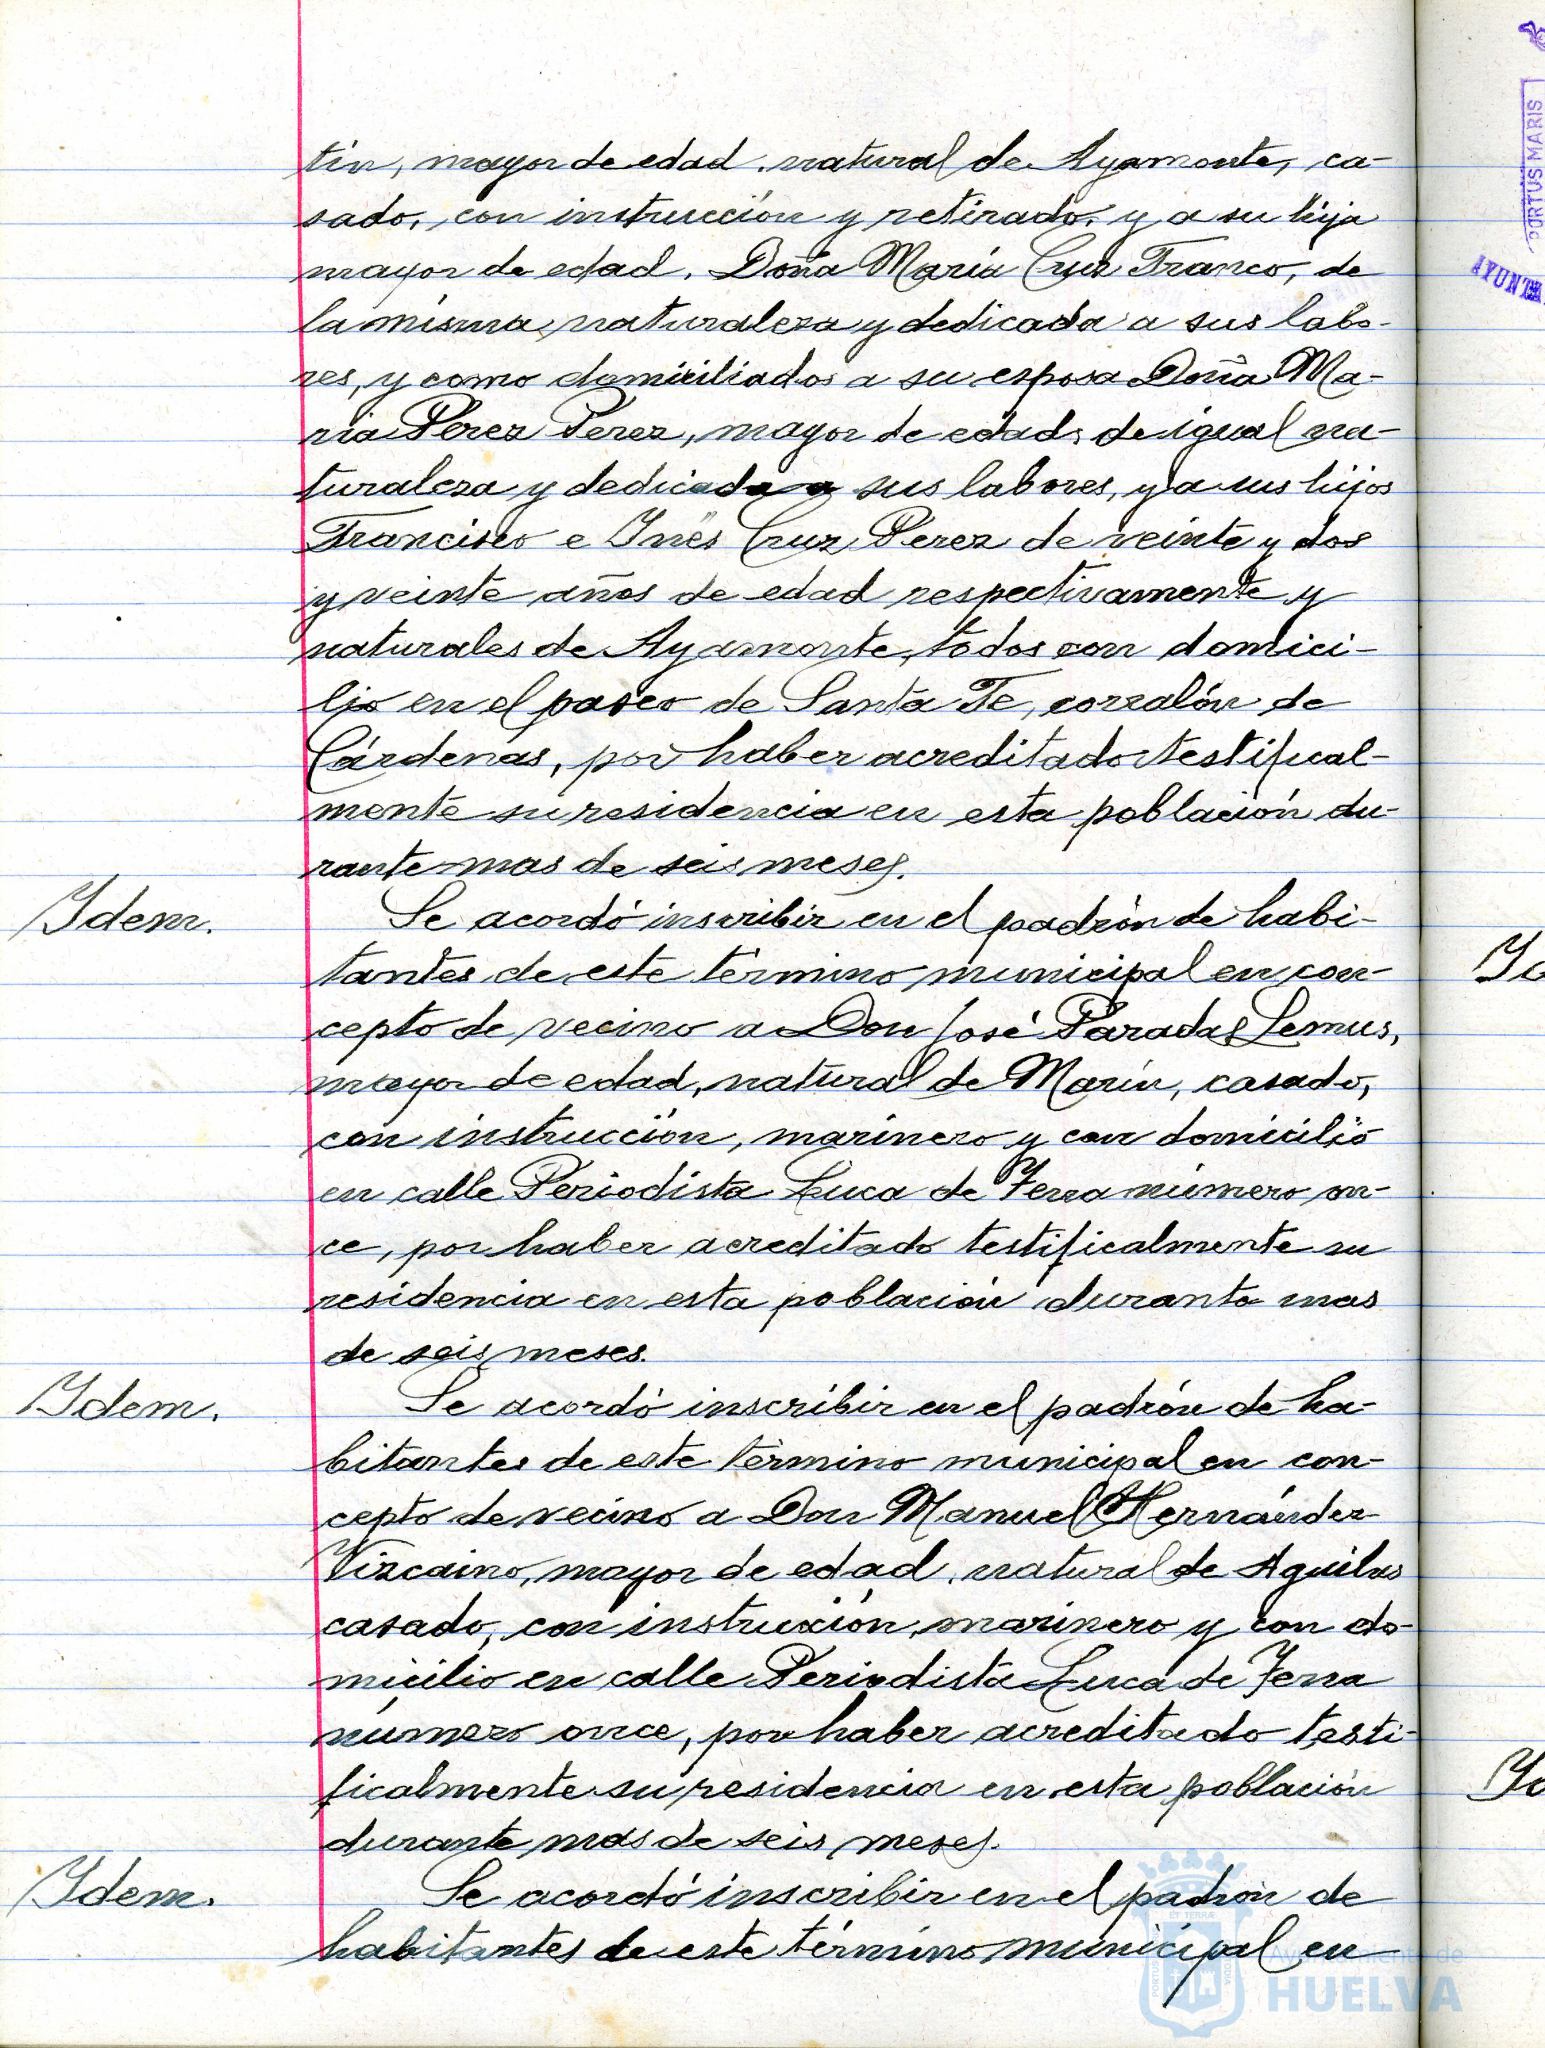 tin, mayor de edad, natural de Ayamonte, ca-
sado, con instrucción y retirado, y a su hija
mayor de edad, Doña María Cruz Franco, de
la misma naturaleza y dedicada a sus labo-
res, y como domiciliados a su esposa Doña Ma-
ria Perez Perez, mayor de edad, de igual na-
turaleza y dedicada a sus labores, y a sus hijos
Francisco e Inés Cruz Perez de veinte y dos
y veinte años de edad respectivamente y
naturales de Ayamonte, todos con domici-
lio en el paseo de Santa Fe, corralón de
Cárdenas, por haber acreditado testifical-
mente su residencia en esta población du-
rante mas de seis meses.
Idem.
Se acordó inscribir en el padrón de habi-
tantes de este término municipal en con-
cepto de vecino a Don José Paradas Lemus,
mayor de edad, natural de Marín, casado,
con instrucción, marinero y con domicilio
en calle Periodista Luca de Tena número on-
ce, por haber acreditado testificalmente su
residencia en esta población durante mas
de seis meses.
Idem.
Se acordó inscribir en el padrón de ha-
bitantes de este término municipal en con-
cepto de vecino a Don Manuel Hernández
Vizcaino, mayor de edad, natural de Aguilas
casado, con instrucción, marinero y con do-
micilio en calle Periodista Luca de Tena
número once, por haber acreditado testi-
ficalmente su residencia en esta población
durante mas de seis meses.
Idem.
Se acordó inscribir en el padrón de
habitantes de este término municipal en
Ayuntamiento de
HUELVA
PORTUS MARIS
AYUNTA